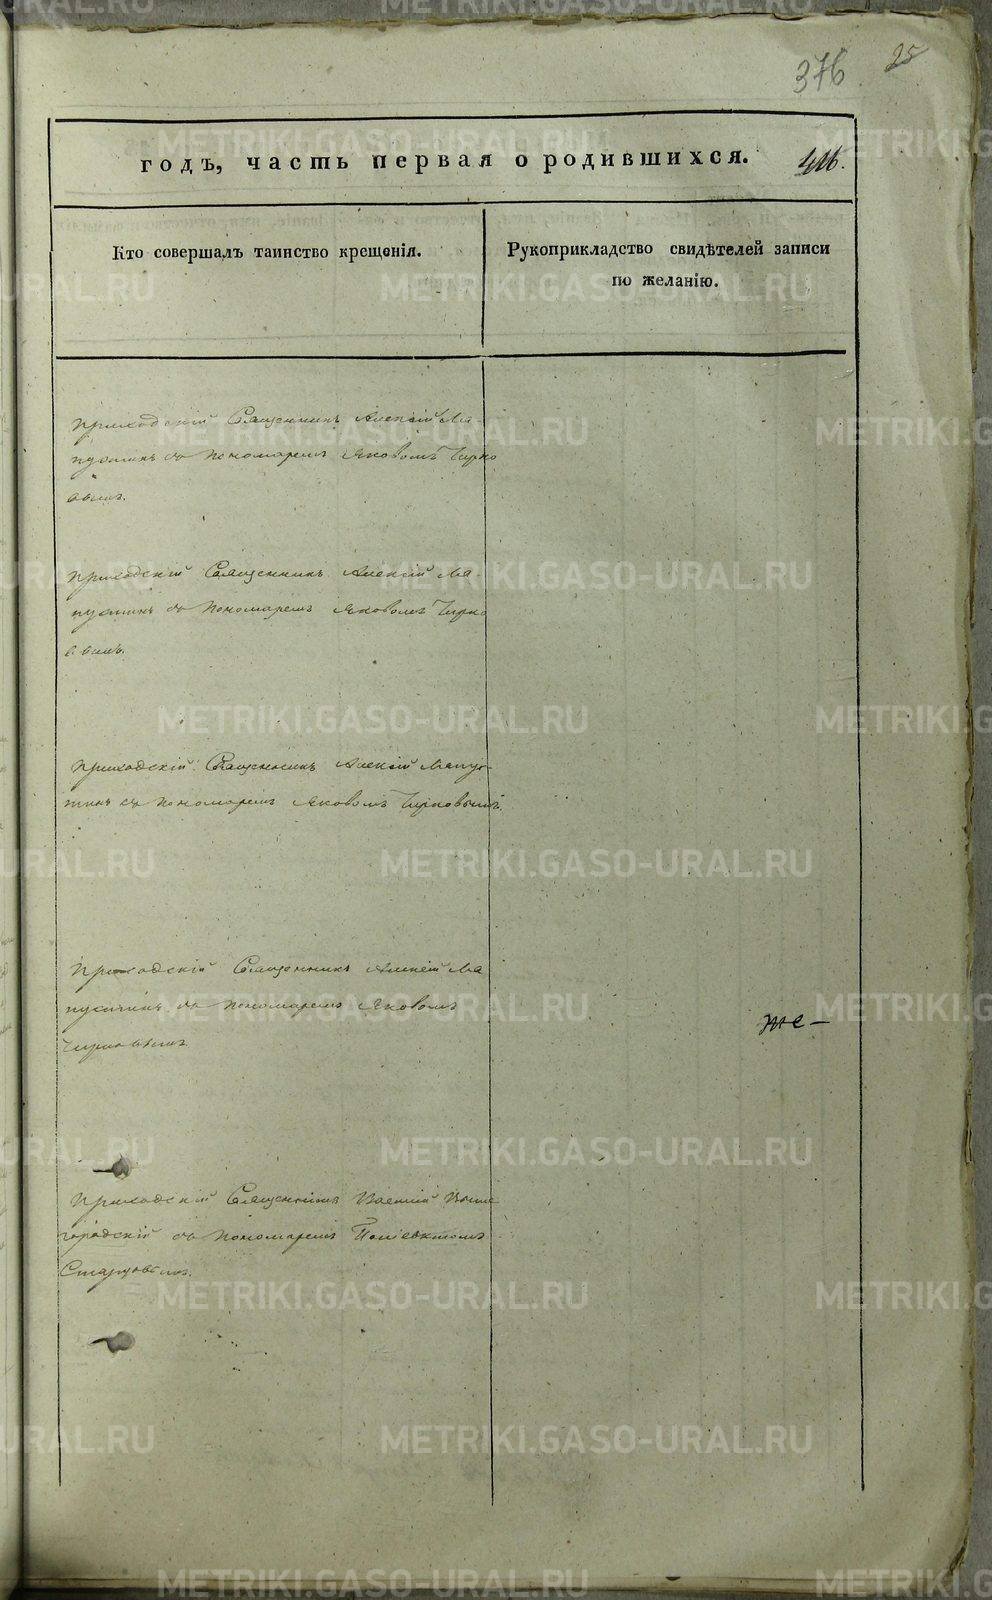 376 25
годъ, часть первая о родившихся. 416.
Кто совершалъ таинство крещенія.
Рукоприкладство свидѣтелей записи
по желанію.
Приходскій Священникъ Алексій Ла-
пустинъ съ пономаремъ Яковомъ Чирко
вымъ.
Приходскій Священникъ Алексій Ла-
пустинъ съ пономаремъ Яковомъ Чирко
вымъ.
Приходскій Священникъ Алексій Лапус-
тинъ съ пономаремъ Яковомъ Чирковымъ.
Приходскій Священникъ Алексій Ла
пустинъ съ пономаремъ Яковомъ
Чирковымъ.
же-
Приходскій Священникъ Василій Выше
городскій съ пономаремъ Поліевктомъ
Старцовымъ.
METRIKI.GASO-URAL.RU